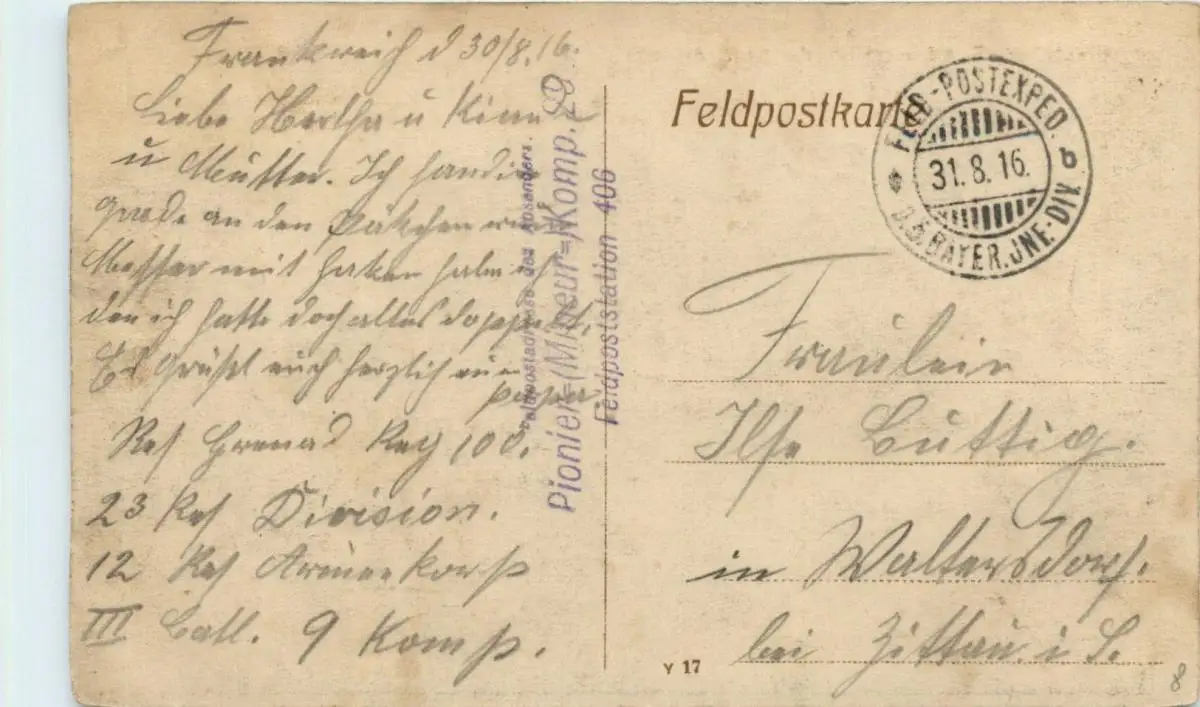 Frankreich d 30/8.16.
Liebe Hertha u
u Mutter. Ich
grade an den Päkchen
Messer mit haken
den ich hatte doch alles doppelt,
Es grüßt euch herzlich
papa
Res Grenad Reg 100.
23 Res Division.
12 Res Armeekorps
III Batl. 9 Komp.
Feldpostadresse des Absenders.
Pionier=(Mineur=)Komp.
Feldpoststation 406
Feldpostkarte
FELD-POSTEXPED. b
31.8.16.
D.5.BAYER.JNF.-DIV.
Fräulein
Ilse Buttig.
in Waltersdorf.
bei Zittau i. S.
Y 17
8